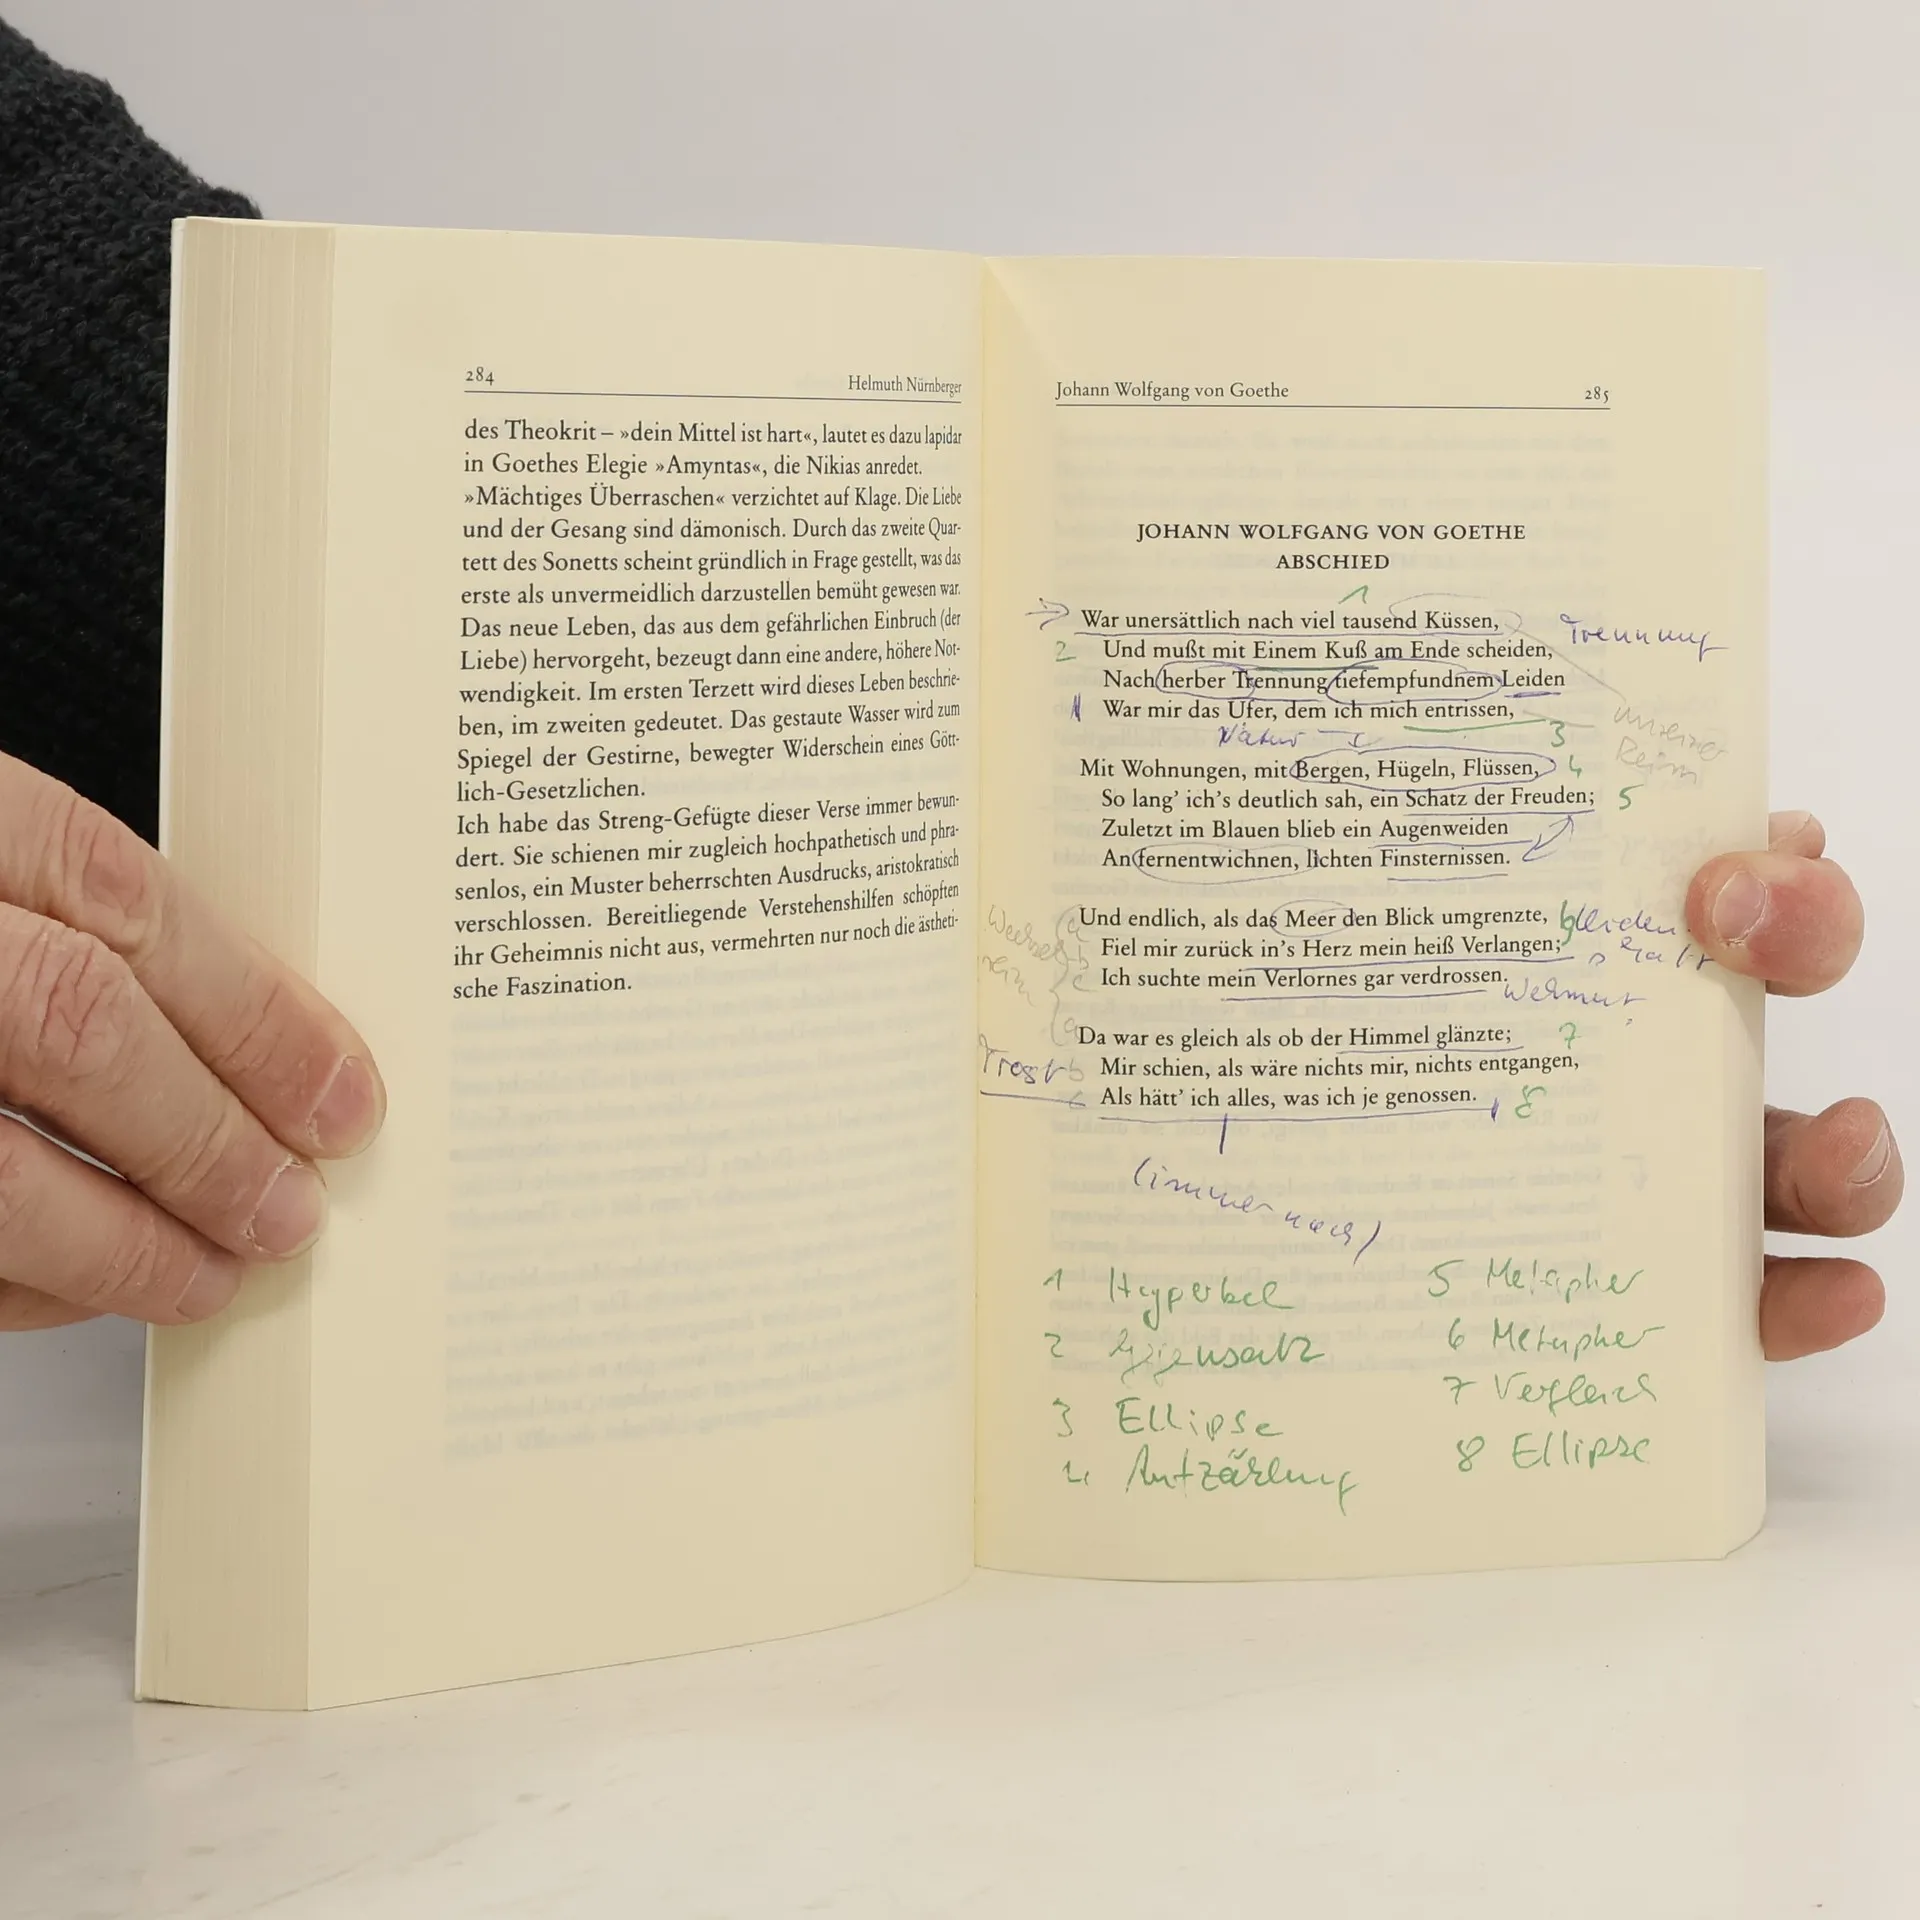 284
Helmuth Nürnberger
des Theokrit – »dein Mittel ist hart«, lautet es dazu lapidar
in Goethes Elegie »Amyntas«, die Nikias anredet.
»Mächtiges Überraschen« verzichtet auf Klage. Die Liebe
und der Gesang sind dämonisch. Durch das zweite Quar-
tett des Sonetts scheint gründlich in Frage gestellt, was das
erste als unvermeidlich darzustellen bemüht gewesen war.
Das neue Leben, das aus dem gefährlichen Einbruch (der
Liebe) hervorgeht, bezeugt dann eine andere, höhere Not-
wendigkeit. Im ersten Terzett wird dieses Leben beschrie-
ben, im zweiten gedeutet. Das gestaute Wasser wird zum
Spiegel der Gestirne, bewegter Widerschein eines Gött-
lich-Gesetzlichen.
Ich habe das Streng-Gefügte dieser Verse immer bewun-
dert. Sie schienen mir zugleich hochpathetisch und phra-
senlos, ein Muster beherrschten Ausdrucks, aristokratisch
verschlossen. Bereitliegende Verstehenshilfen schöpften
ihr Geheimnis nicht aus, vermehrten nur noch die ästheti-
sche Faszination.
Johann Wolfgang von Goethe
285
JOHANN WOLFGANG VON GOETHE
ABSCHIED
1
War unersättlich nach viel tausend Küssen,
Trennung
2 Und mußt mit Einem Kuß am Ende scheiden,
Nach herber Trennung tiefempfundnem Leiden
War mir das Ufer, dem ich mich entrissen,
Natur
3
Reim
Mit Wohnungen, mit Bergen, Hügeln, Flüssen, 4
So lang' ich's deutlich sah, ein Schatz der Freuden; 5
Zuletzt im Blauen blieb ein Augenweiden
An fernentwichnen, lichten Finsternissen.
a Und endlich, als das Meer den Blick umgrenzte, 6
b Fiel mir zurück in's Herz mein heiß Verlangen;
c Ich suchte mein Verlornes gar verdrossen.
Wehmut
a Da war es gleich als ob der Himmel glänzte; 7
Trost b Mir schien, als wäre nichts mir, nichts entgangen,
c Als hätt' ich alles, was ich je genossen. 8
(immer noch)
1 Hyperbel
5 Metapher
2 Gegensatz
6 Metapher
3 Ellipse
7 Vergleich
4 Aufzählung
8 Ellipse